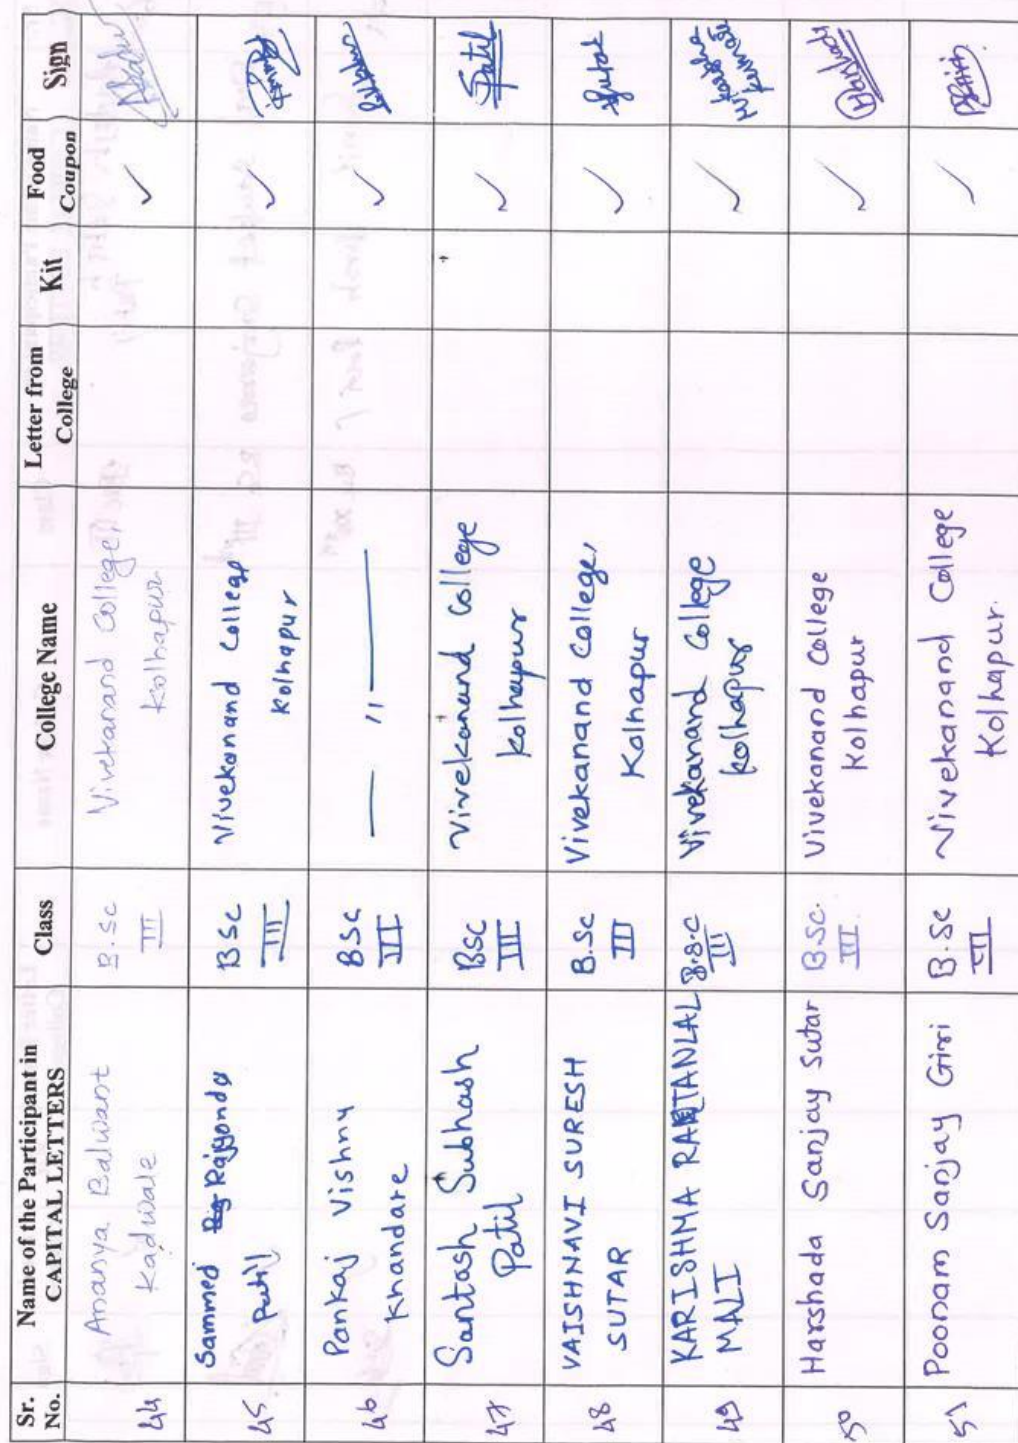 Sr. No. Name of the Participant in CAPITAL LETTERS Class College Name Letter from College Kit Food Coupon Sign
44 Ananya Balwant Kadwale B.sc III Vivekanand College, Kolhapur ✓
45 Sammed Rajgonda Patil BSc III Vivekanand College Kolhapur ✓
46 Pankaj Vishnu Khandare BSc III — 11 — ✓
47 Santosh Subhash Patil BSc III Vivekanand College Kolhapur ✓ Patil
48 VAISHNAVI SURESH SUTAR B.Sc III Vivekanand College, Kolhapur ✓
49 KARISHMA RATANLAL MALI B.S.C III Vivekanand College Kolhapur ✓
50 Harshada Sanjay Sutar B.Sc. III Vivekanand College Kolhapur ✓
51 Poonam Sanjay Giri B.Sc III Vivekanand College Kolhapur. ✓